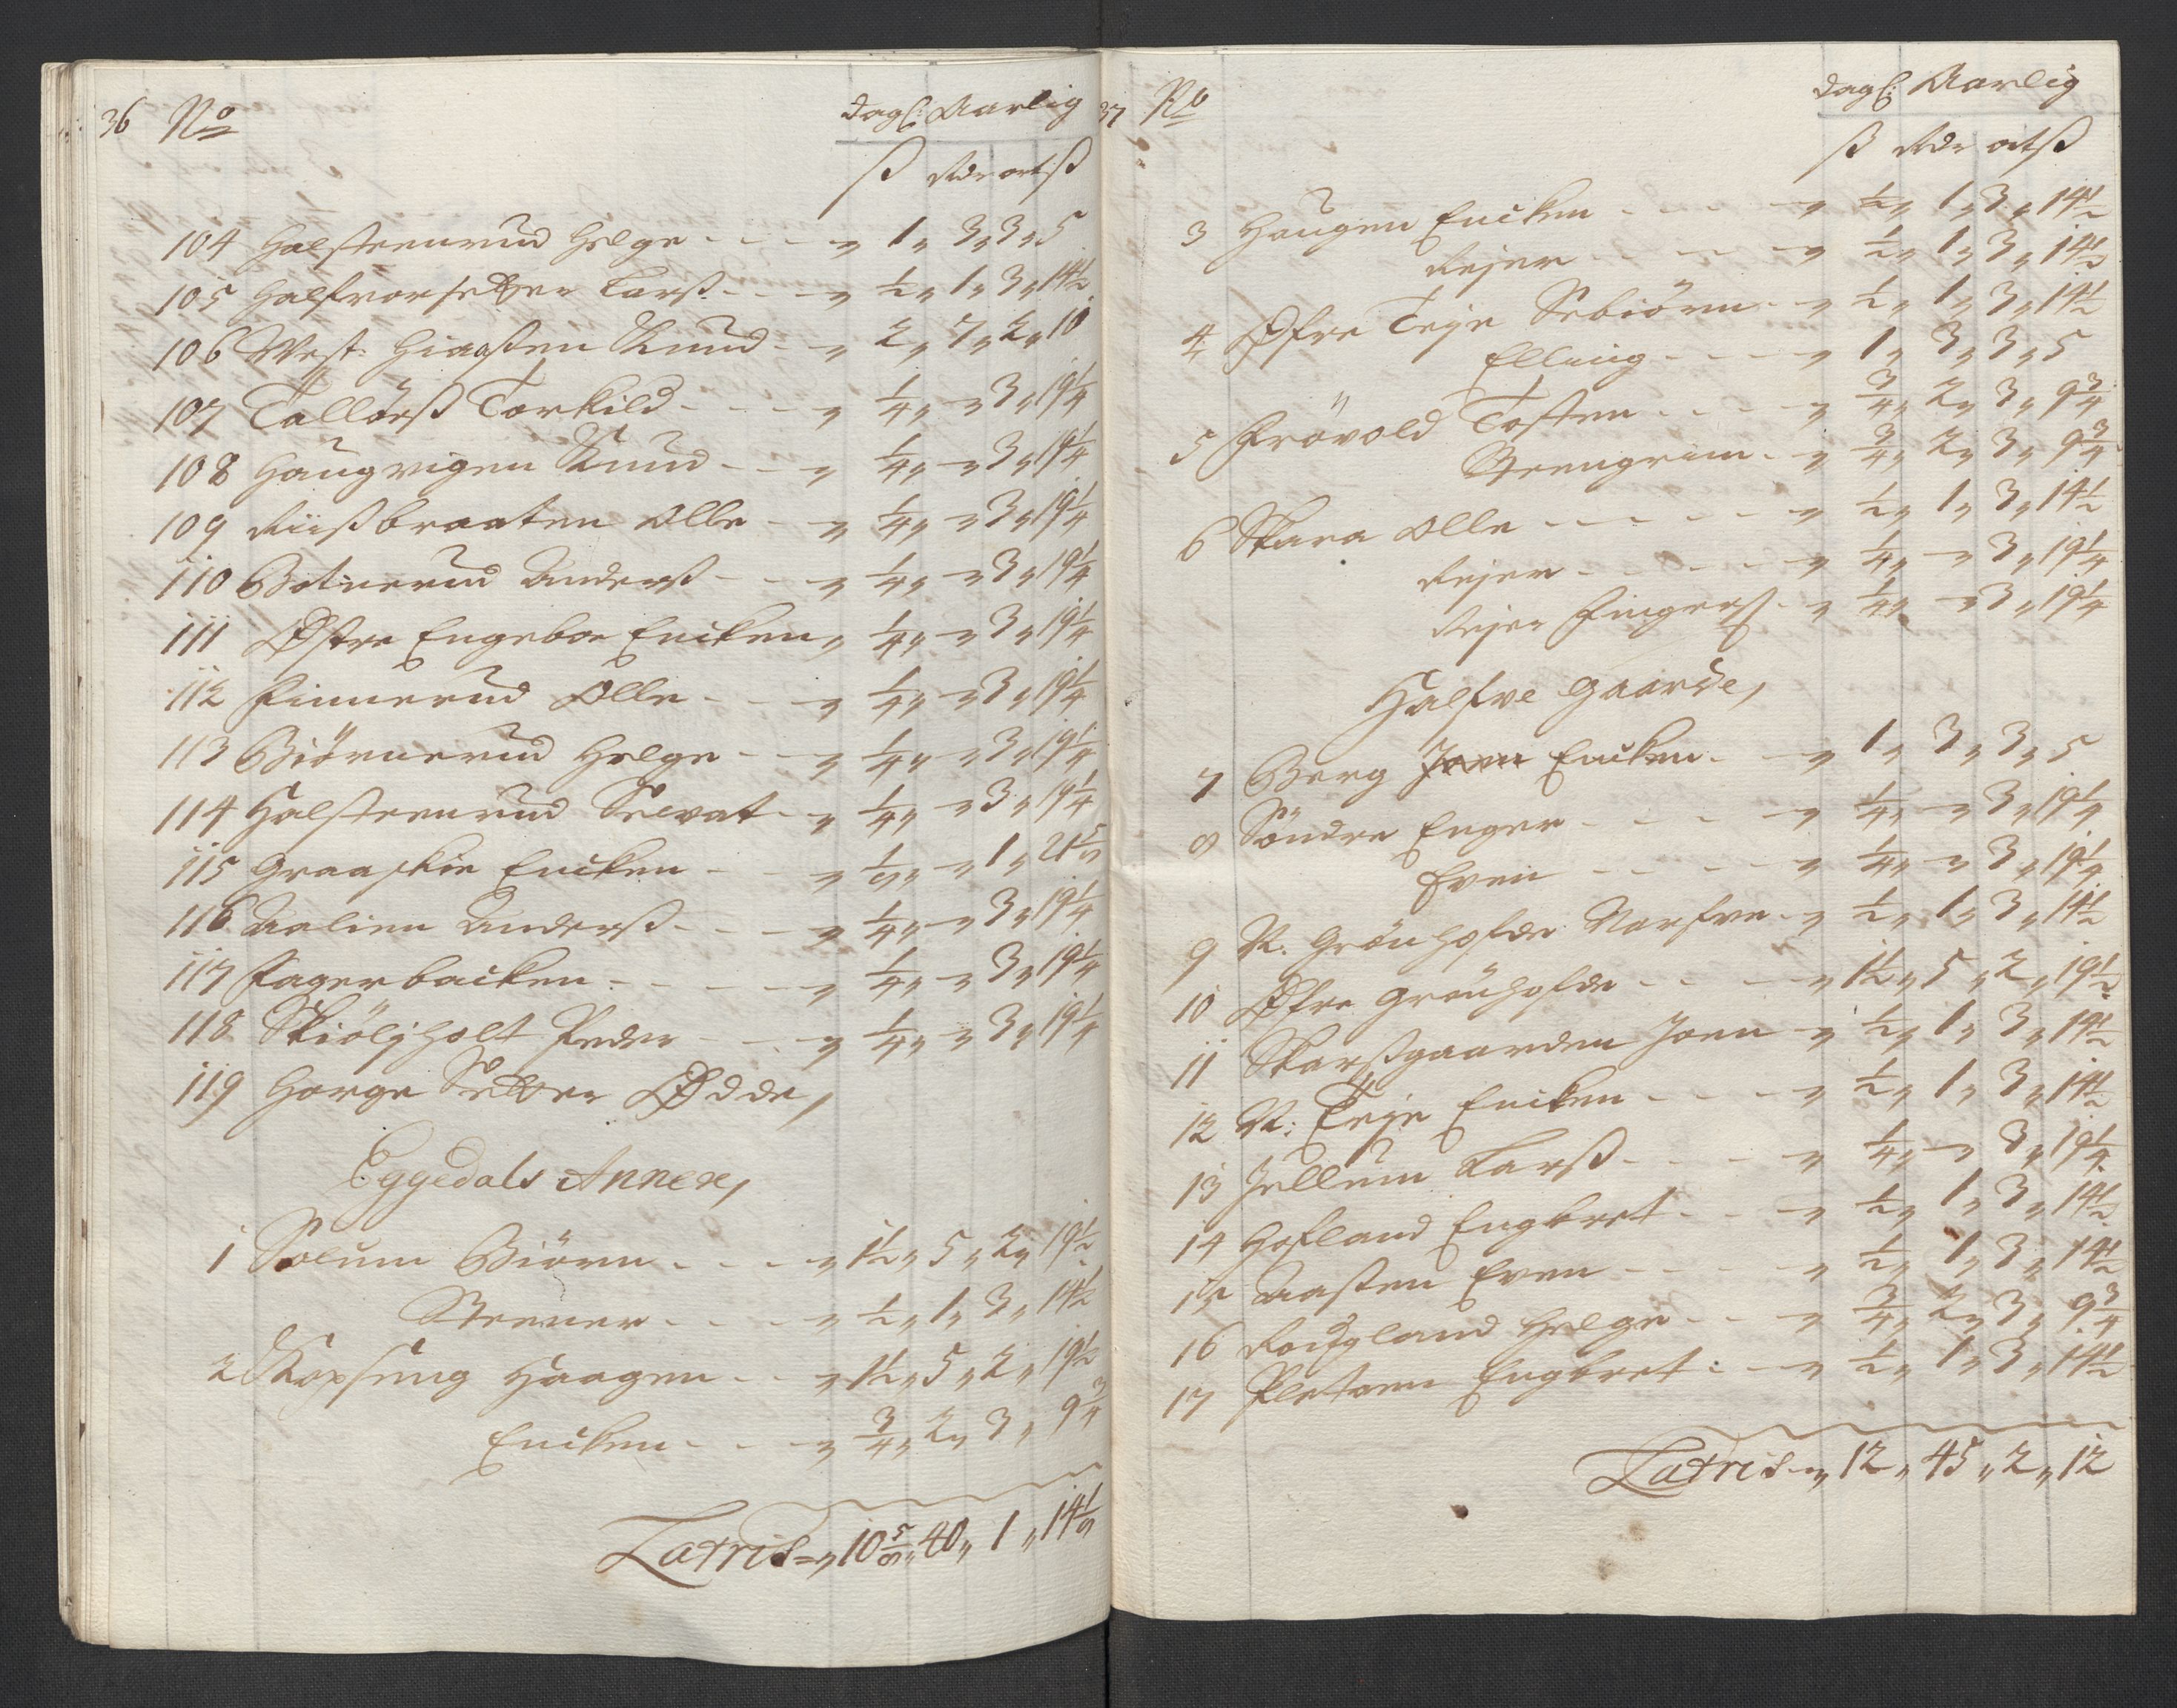 36 No dagl: Aarlig
ß Rdr ort ß
104 Halsteenrud Helge - - - „ 1„ 3„ 3„ 5
105 Halfvorsetter Larß - - - „ ½„ 1„ 3„ 14½
106 West: Giaasten Knud - „ 2„ 7„ 2„ 10
107 Tallørß Torkild - - - „ ¼„ -„ 3„ 19¼
108 Haugvigen Knud - - „ ¼„ -„ 3„ 19¼
109 Riißbraaten Olle - „ ¼„ -„ 3„ 19¼
110 Botnerud Anderß - - „ ¼„ -„ 3„ 19¼
111 Østre Engeboe Ericken „ ¼„ -„ 3„ 19¼
112 Finnerud Olle - - - „ ¼„ -„ 3„ 19¼
113 Biørnerud Helge - - „ ¼„ -„ 3„ 19¼
114 Halsteenrud Siwat - „ ¼„ -„ 3„ 19¼
115 Graaskie Ericken - - „ ⅛„ -„ 1„ 21⅝
116 Aalien Anderß - - - „ ¼„ -„ 3„ 19¼
117 Fagerbacken - - - - „ ¼„ -„ 3„ 19¼
118 Skiølsholt Peder - - - „ ¼„ -„ 3„ 19¼
119 Horge Setter Ødde,
Eggedals Annex,
1 Solum Biørn - - - „ 1½„ 5„ 2„ 19½
Steener - - - „ ½„ 1„ 3„ 14½
2 Kopseng Haagen - - „ 1½„ 5„ 2„ 19½
Ericken - - - „ ¾„ 2„ 3„ 9¾
Latris „ 10⅝„ 40„ 1„ 14⅛
37 No dagl: Aarlig
ß Rdr ort ß
3 Haugen Ericken - - - - „ ½„ 1„ 3„ 14½
Rejer - - - - „ ½„ 1„ 3„ 14½
4 Øfre Teje Sebiørn - „ ½„ 1„ 3„ 14½
Elling - - - - „ 1„ 3„ 3„ 5
5 Frøvold Tosten - - - - „ ¾„ 2„ 3„ 9¾
Steengrim - „ ¾„ 2„ 3„ 9¾
6 Skara Olle - - - - - „ ½„ 1„ 3„ 14½
Rejer - - - - - „ ¼„ -„ 3„ 19¼
Rejer Fingerß - „ ¼„ -„ 3„ 19¼
Halfve Gaarde,
7 Berg Joen Ericken - - „ 1„ 3„ 3„ 5
8 Søndre Enger - - - - „ ¼„ -„ 3„ 19¼
Even - - - - „ ¼„ -„ 3„ 19¼
9 N: Grønhofde Narfve - „ ½„ 1„ 3„ 14½
10 Øfre Grønhofde - - - „ 1½„ 5„ 2„ 19½
11 Skarßgaarden Joen - „ ½„ 1„ 3„ 14½
12 N: Teje Ericken - - - „ ½„ 1„ 3„ 14½
13 Jellum Larß - - - - „ ¼„ -„ 3„ 19¼
14 Hofland Engbret - - - „ ½„ 1„ 3„ 14½
15 Aasten Even - - - - „ ½„ 1„ 3„ 14½
16 Helge - - - „ ¾„ 2„ 3„ 9¾
17 Pletten Engbret - - „ ½„ 1„ 3„ 14½
Latris „ 12„ 45„ 2„ 12